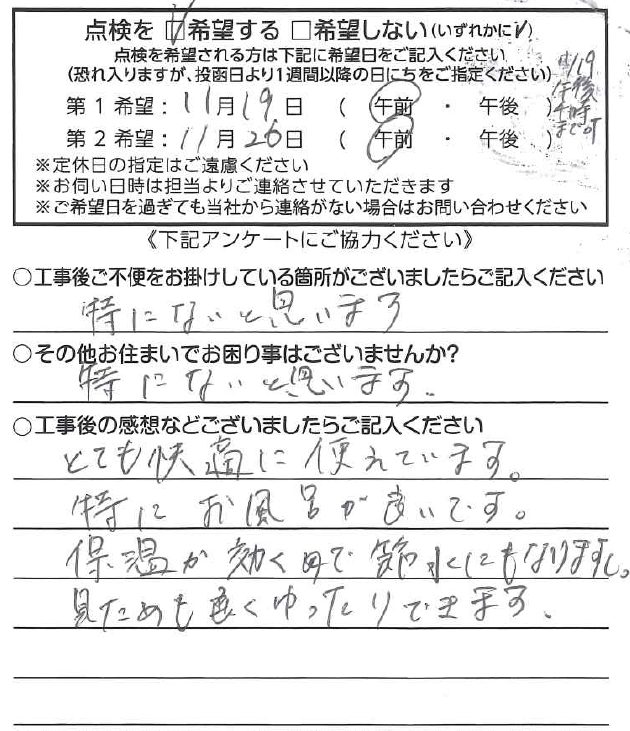 点検を ☑希望する □希望しない(いずれかに✓)
点検を希望される方は下記に希望日をご記入ください
(恐れ入りますが、投函日より1週間以降の日にちをご指定ください)
第1希望: 11月19日 ( 午前 ・ 午後 )
第2希望: 11月26日 ( 午前 ・ 午後 )
11/19
午後
※定休日の指定はご遠慮ください
※お伺い日時は担当よりご連絡させていただきます
※ご希望日を過ぎても当社から連絡がない場合はお問い合わせください
《下記アンケートにご協力ください》
○工事後ご不便をお掛けしている箇所がございましたらご記入ください
特にないと思います
○その他お住まいでお困り事はございませんか?
特にないと思います.
○工事後の感想などございましたらご記入ください
とても快適に使えています。
特にお風呂が良いです。
保温が効くので節水にもなりますし。
見ためも良くゆったりできます.